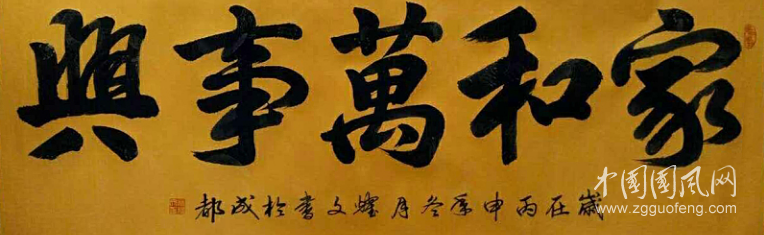 家和萬事興
歲在丙申季冬月耀文書於成都
中国国风网
www.zgguofeng.com